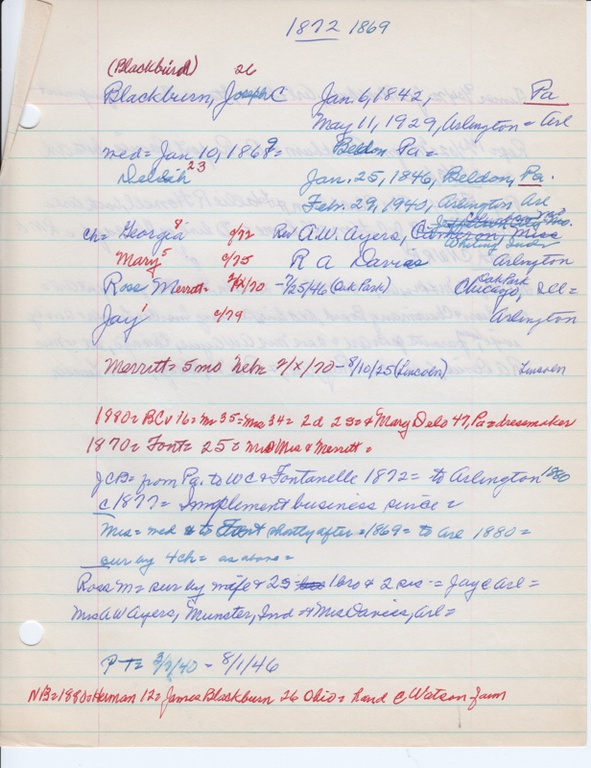 1872 1869
(Blackburd) 26
Blackburn, Joseph C Jan. 6, 1842, Pa
May 11, 1929, Arlington = Arl
med = Jan 10, 1869 = Beldon Pa =
Delilah 23 Jan. 25, 1846, Beldon, Pa.
Feb. 29, 1940, Arlington Arl
ch = Georgia 8 c/72 Rev A.W. Ayers,
Whiting Indi
Mary 5 c/75 R A Davies Arlington
Rose Merritt = 2/x/70 - 7/25/46 (Oak Park) Oak Park Chicago, Ill =
Jay 1 c/79 Arlington
Merritt = 5 mo Nebr 2/x/70 - 8/10/25 (Lincoln) Lincoln
1880 = BCo 16 = Mr 35 = Mrs 34 = 2d 2s = & Mary Delo 47, Pa = dressmaker
1870 = Font = 25 = Mr Mrs & Merritt =
JCB = from Pa. to WC & Fontanelle 1872 = to Arlington 1880
c 1877 = Implement business since =
Mrs = med & to Font shortly after = 1869 = to Arl 1880 =
sur by 4ch = as above =
Ross M = sur by wife & 2s = 1 bro & 2 sis = Jay C Arl =
Mrs A W Ayers, Munster, Ind & Mrs Davies, Arl =
PT = 3/7/40 - 8/1/46
NB = 1880 = Herman 12 = James Blackburn 26 Ohio = hand C Watson farm